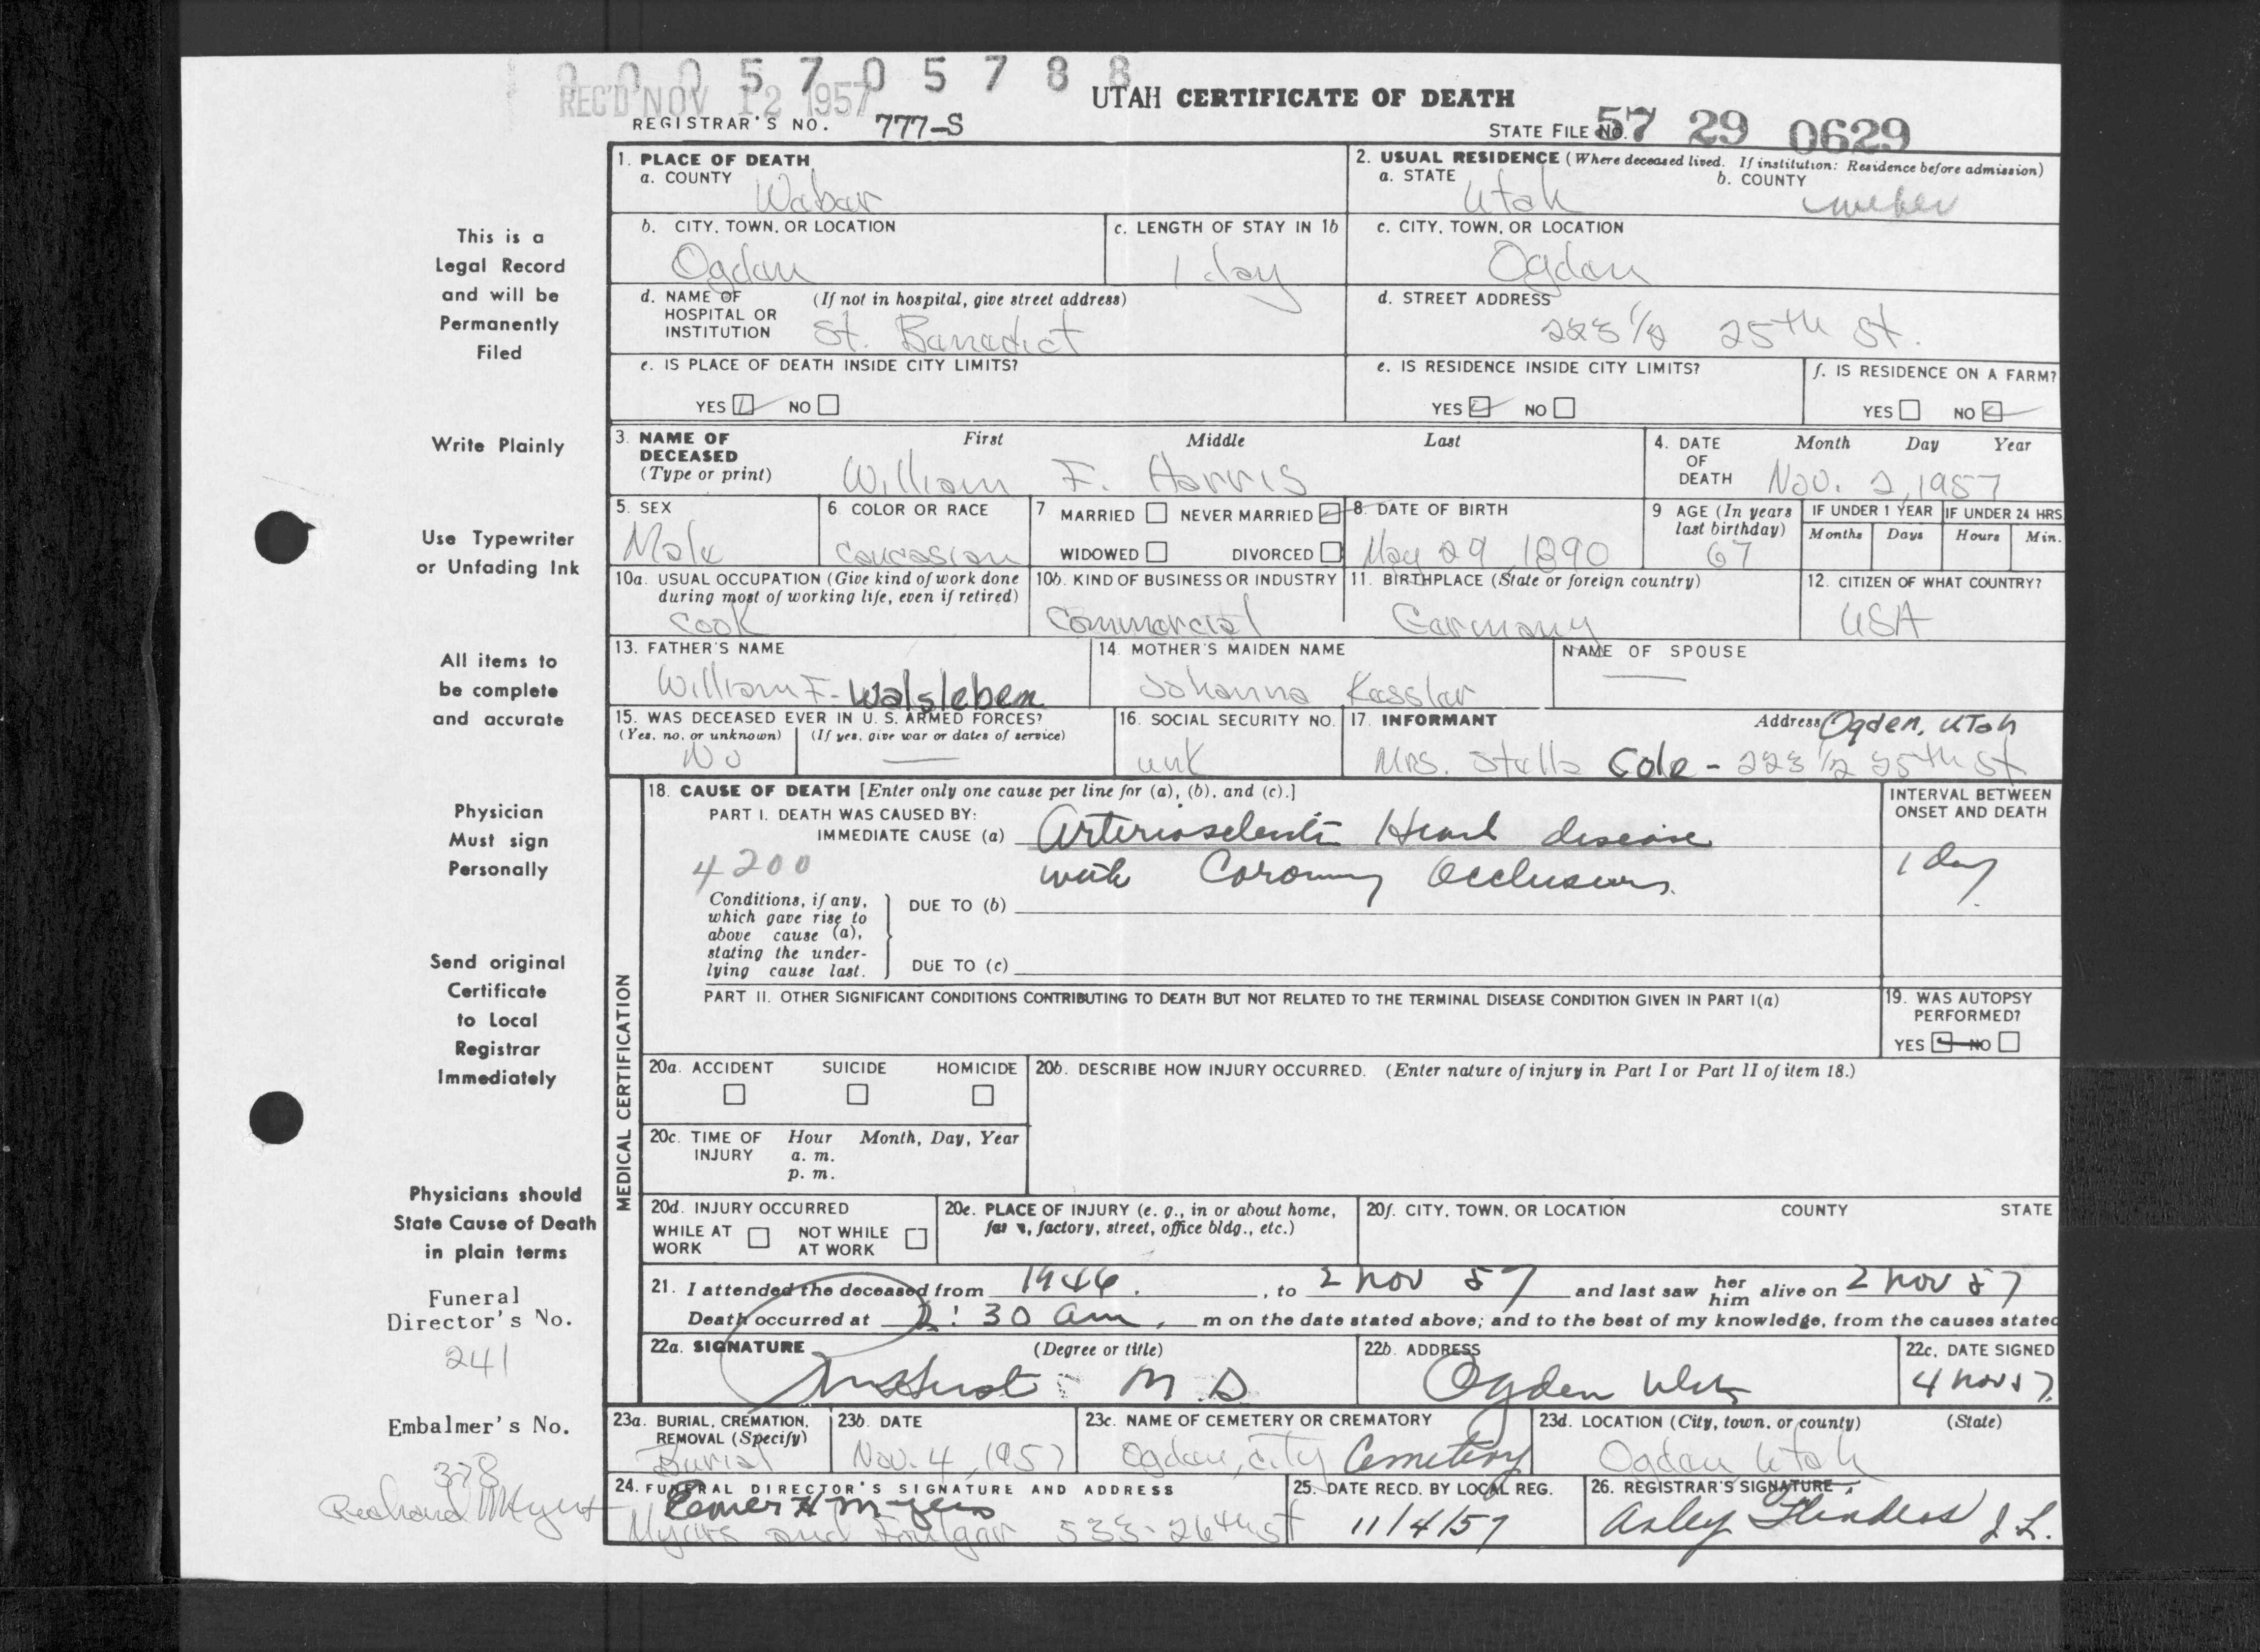 0 0 0 5 7 0 5 7 8 8
REC'D NOV 12 1957
UTAH CERTIFICATE OF DEATH
REGISTRAR'S NO. 777-S
STATE FILE NO. 57 29 0629
1. PLACE OF DEATH
a. COUNTY Weber
2. USUAL RESIDENCE (Where deceased lived. If institution: Residence before admission)
a. STATE Utah b. COUNTY Weber
b. CITY, TOWN, OR LOCATION Ogden
c. LENGTH OF STAY IN 1b 1 day
c. CITY, TOWN, OR LOCATION Ogden
d. NAME OF HOSPITAL OR INSTITUTION (If not in hospital, give street address) St. Benedict
d. STREET ADDRESS 223 1/2 25th St.
e. IS PLACE OF DEATH INSIDE CITY LIMITS?
YES NO
e. IS RESIDENCE INSIDE CITY LIMITS?
YES NO
f. IS RESIDENCE ON A FARM?
YES NO
3. NAME OF DECEASED (Type or print) First Middle Last
William F. Harris
4. DATE OF DEATH Month Day Year
Nov. 2, 1957
5. SEX Male
6. COLOR OR RACE Caucasian
7. MARRIED NEVER MARRIED
WIDOWED DIVORCED
8. DATE OF BIRTH May 29, 1890
9 AGE (In years last birthday) 67
IF UNDER 1 YEAR Months Days
IF UNDER 24 HRS. Hours Min.
10a. USUAL OCCUPATION (Give kind of work done during most of working life, even if retired) Cook
10b. KIND OF BUSINESS OR INDUSTRY Commercial
11. BIRTHPLACE (State or foreign country) Germany
12. CITIZEN OF WHAT COUNTRY? USA
13. FATHER'S NAME William F. Walsleben
14. MOTHER'S MAIDEN NAME Johanna Kesslar
NAME OF SPOUSE —
15. WAS DECEASED EVER IN U. S. ARMED FORCES?
(Yes, no, or unknown) (If yes, give war or dates of service)
No —
16. SOCIAL SECURITY NO. unk
17. INFORMANT Address Ogden, Utah
Mrs. Stella Cole - 223 1/2 25th St
MEDICAL CERTIFICATION
18. CAUSE OF DEATH [Enter only one cause per line for (a), (b), and (c).]
INTERVAL BETWEEN ONSET AND DEATH
PART I. DEATH WAS CAUSED BY:
IMMEDIATE CAUSE (a) Arteriosclerotic Heart disease
4200 with Coronary Occlusion 1 day
Conditions, if any, which gave rise to above cause (a), stating the underlying cause last.
DUE TO (b)
DUE TO (c)
PART II. OTHER SIGNIFICANT CONDITIONS CONTRIBUTING TO DEATH BUT NOT RELATED TO THE TERMINAL DISEASE CONDITION GIVEN IN PART I(a)
19. WAS AUTOPSY PERFORMED?
YES NO
20a. ACCIDENT SUICIDE HOMICIDE
20b. DESCRIBE HOW INJURY OCCURRED. (Enter nature of injury in Part I or Part II of item 18.)
20c. TIME OF INJURY Hour Month, Day, Year
a. m.
p. m.
20d. INJURY OCCURRED
WHILE AT WORK NOT WHILE AT WORK
20e. PLACE OF INJURY (e. g., in or about home, farm, factory, street, office bldg., etc.)
20f. CITY, TOWN, OR LOCATION COUNTY STATE
21. I attended the deceased from 1946, to 2 Nov 57 and last saw her him alive on 2 Nov 57
Death occurred at 2:30 am, m on the date stated above; and to the best of my knowledge, from the causes stated
22a. SIGNATURE (Degree or title) M.D.
22b. ADDRESS Ogden Utah
22c. DATE SIGNED 4 Nov 57
23a. BURIAL, CREMATION, REMOVAL (Specify) Burial
23b. DATE Nov. 4, 1957
23c. NAME OF CEMETERY OR CREMATORY Ogden City Cemetery
23d. LOCATION (City, town, or county) (State) Ogden Utah
24. FUNERAL DIRECTOR'S SIGNATURE AND ADDRESS
Myers
Myers and Foulger 533-26th St
25. DATE RECD. BY LOCAL REG. 11/4/57
26. REGISTRAR'S SIGNATURE Arley Flinders J L.
This is a
Legal Record
and will be
Permanently
Filed
Write Plainly
Use Typewriter
or Unfading Ink
All items to
be complete
and accurate
Physician
Must sign
Personally
Send original
Certificate
to Local
Registrar
Immediately
Physicians should
State Cause of Death
in plain terms
Funeral
Director's No.
241
Embalmer's No.
378
Richard Myers